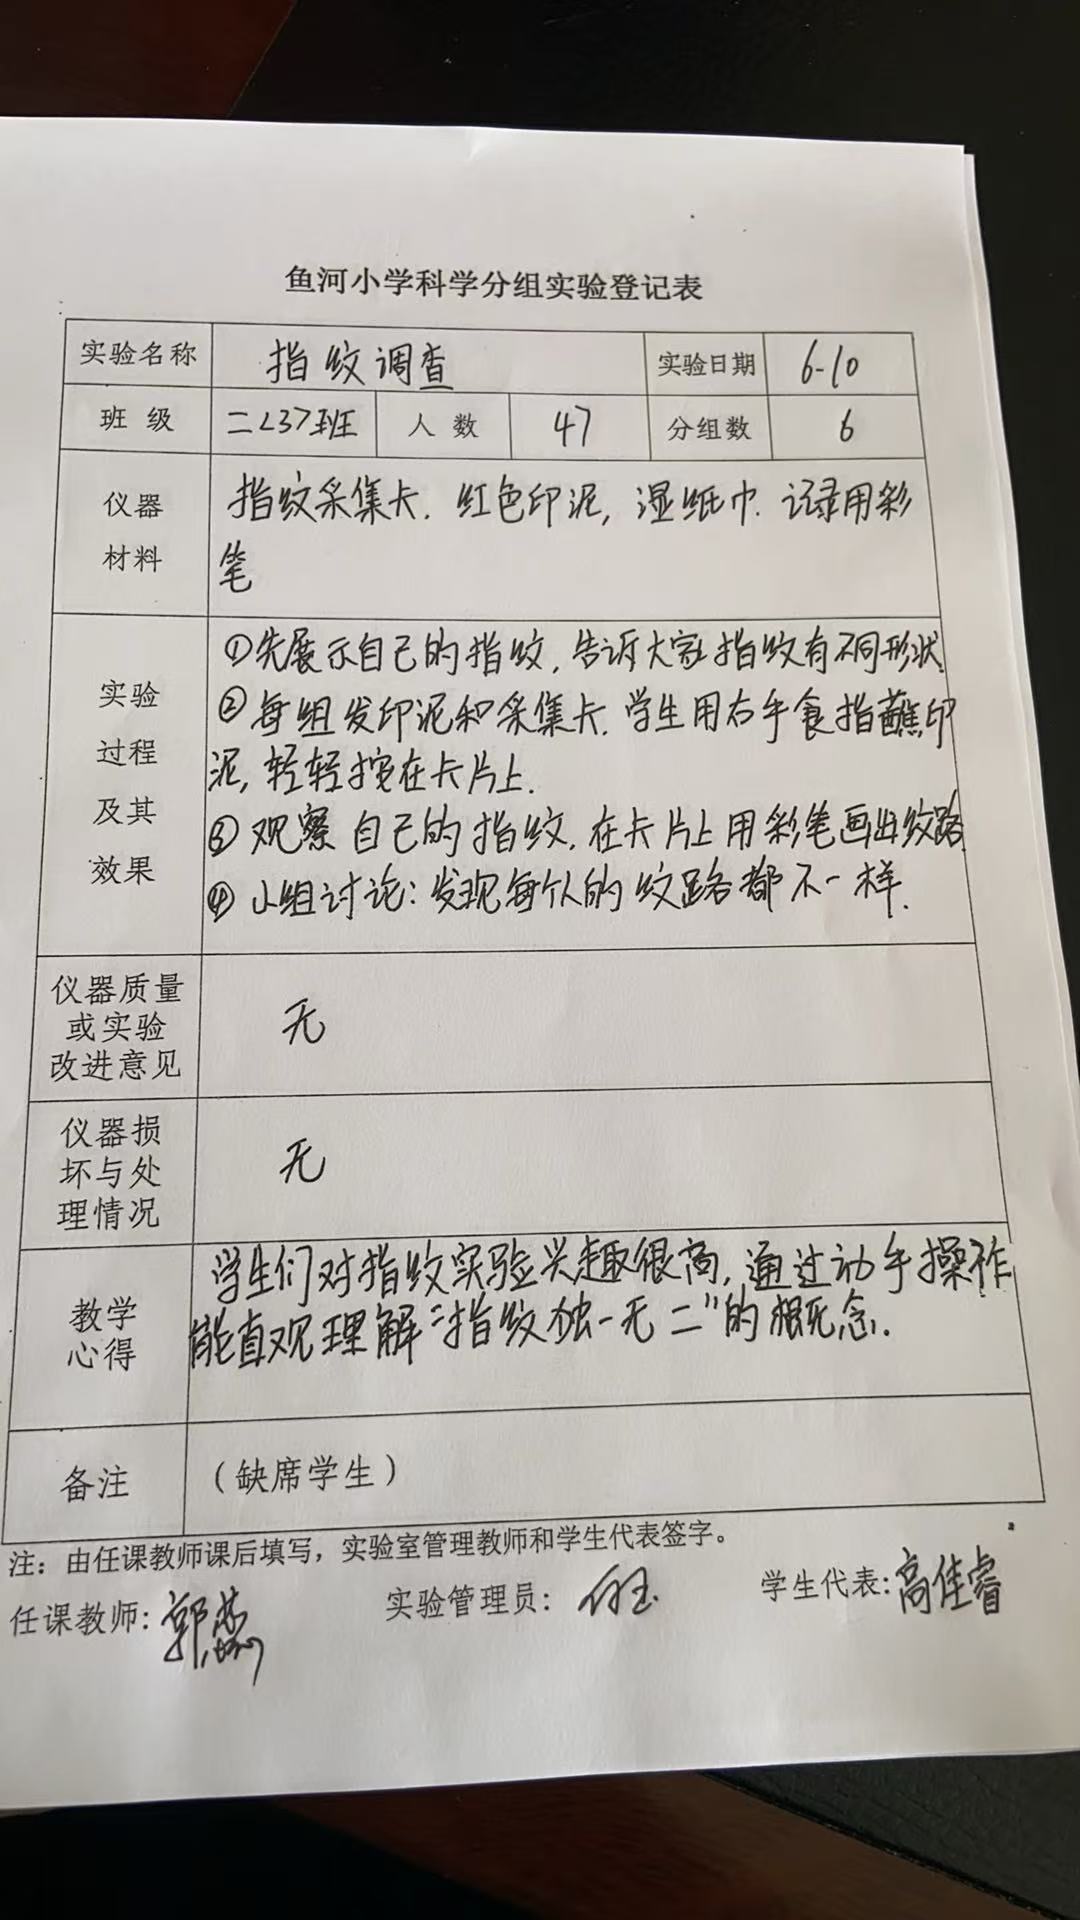 鱼河小学科学分组实验登记表
实验名称 指纹调查 实验日期 6-10
班 级 二<3>班 人 数 47 分组数 6
仪器
材料
指纹采集卡. 红色印泥, 湿纸巾. 记录用彩
笔
实验
过程
及其
效果
①先展示自己的指纹, 告诉大家指纹有不同形状.
②每组发印泥和采集卡. 学生用右手食指蘸印
泥, 轻轻按在卡片上.
③观察自己的指纹. 在卡片上用彩笔画出纹路
④小组讨论: 发现每个人的纹路都不一样.
仪器质量
或实验
改进意见
无
仪器损
坏与处
理情况
无
教学
心得
学生们对指纹实验兴趣很高, 通过动手操作
能直观理解"指纹独一无二"的概念.
备注 (缺席学生)
注: 由任课教师课后填写, 实验室管理教师和学生代表签字。
任课教师: 郭蕊 实验管理员: 学生代表: 高佳睿